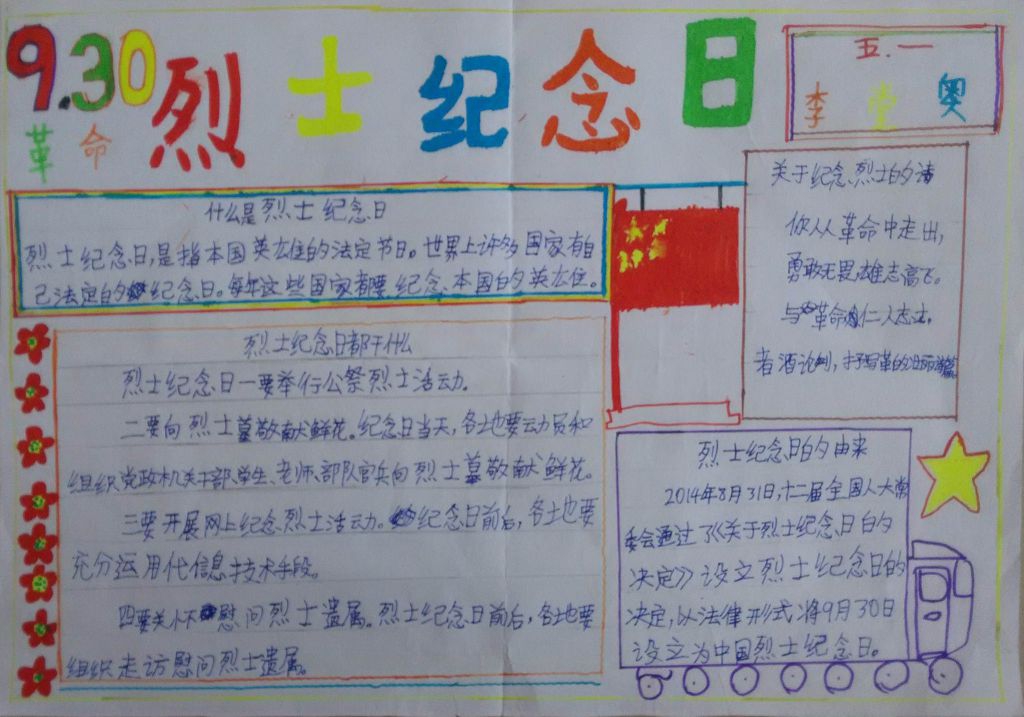 9.30烈士纪念日
革命
五.一
李莹奥
什么是烈士纪念日
烈士纪念日,是指本国英雄的法定节日。世界上许多国家有自
己法定的纪念日。每年这些国家都要纪念本国的英雄。
烈士纪念日都干什么
烈士纪念日一要举行公祭烈士活动。
二要向烈士墓敬献鲜花。纪念日当天,各地要动员和
组织党政机关干部、学生、老师、部队官兵向烈士墓敬献鲜花。
三要开展网上纪念烈士活动。纪念日前后,各地也要
充分运用代信息技术手段。
四要关怀慰问烈士遗属。烈士纪念日前后,各地也要
组织走访慰问烈士遗属。
关于纪念烈士的诗
你从革命中走出,
勇敢无畏雄志高飞。
与革命仁人志士,
者酒论
烈士纪念日的由来
2014年8月31日,十二届全国人大常
委会通过了《关于烈士纪念日的
决定》设立烈士纪念日的
决定,以法律形式将9月30日
设立为中国烈士纪念日。